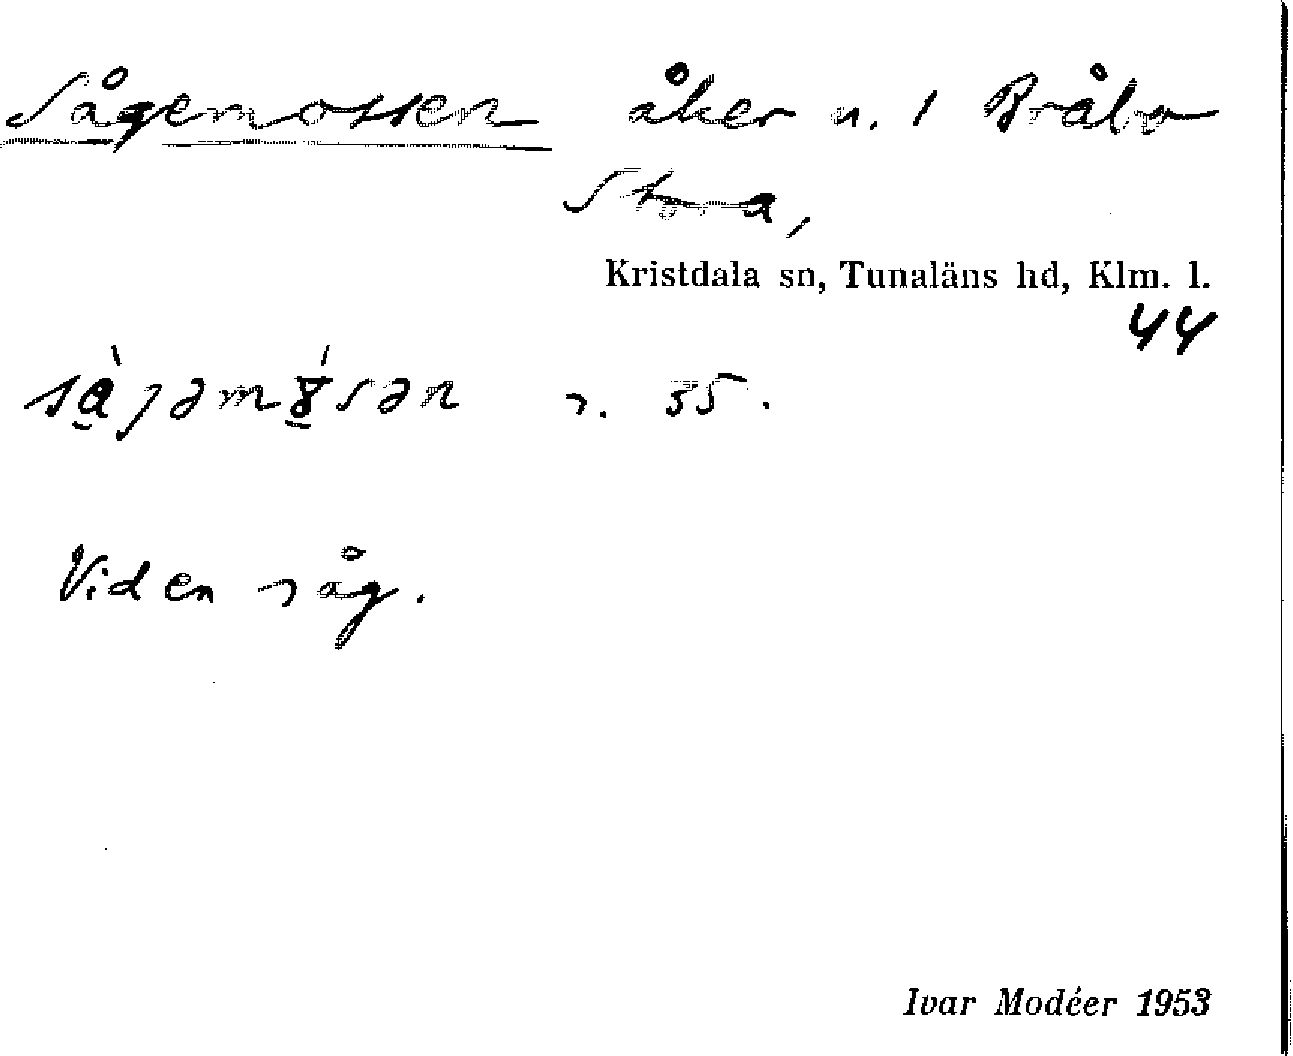 Sågemossen åker n. 1 Bråbo
Stora,
Kristdala sn, Tunaläns hd, Klm. l.
44
s. 35.
Vid en såg.
Ivar Modéer 1953